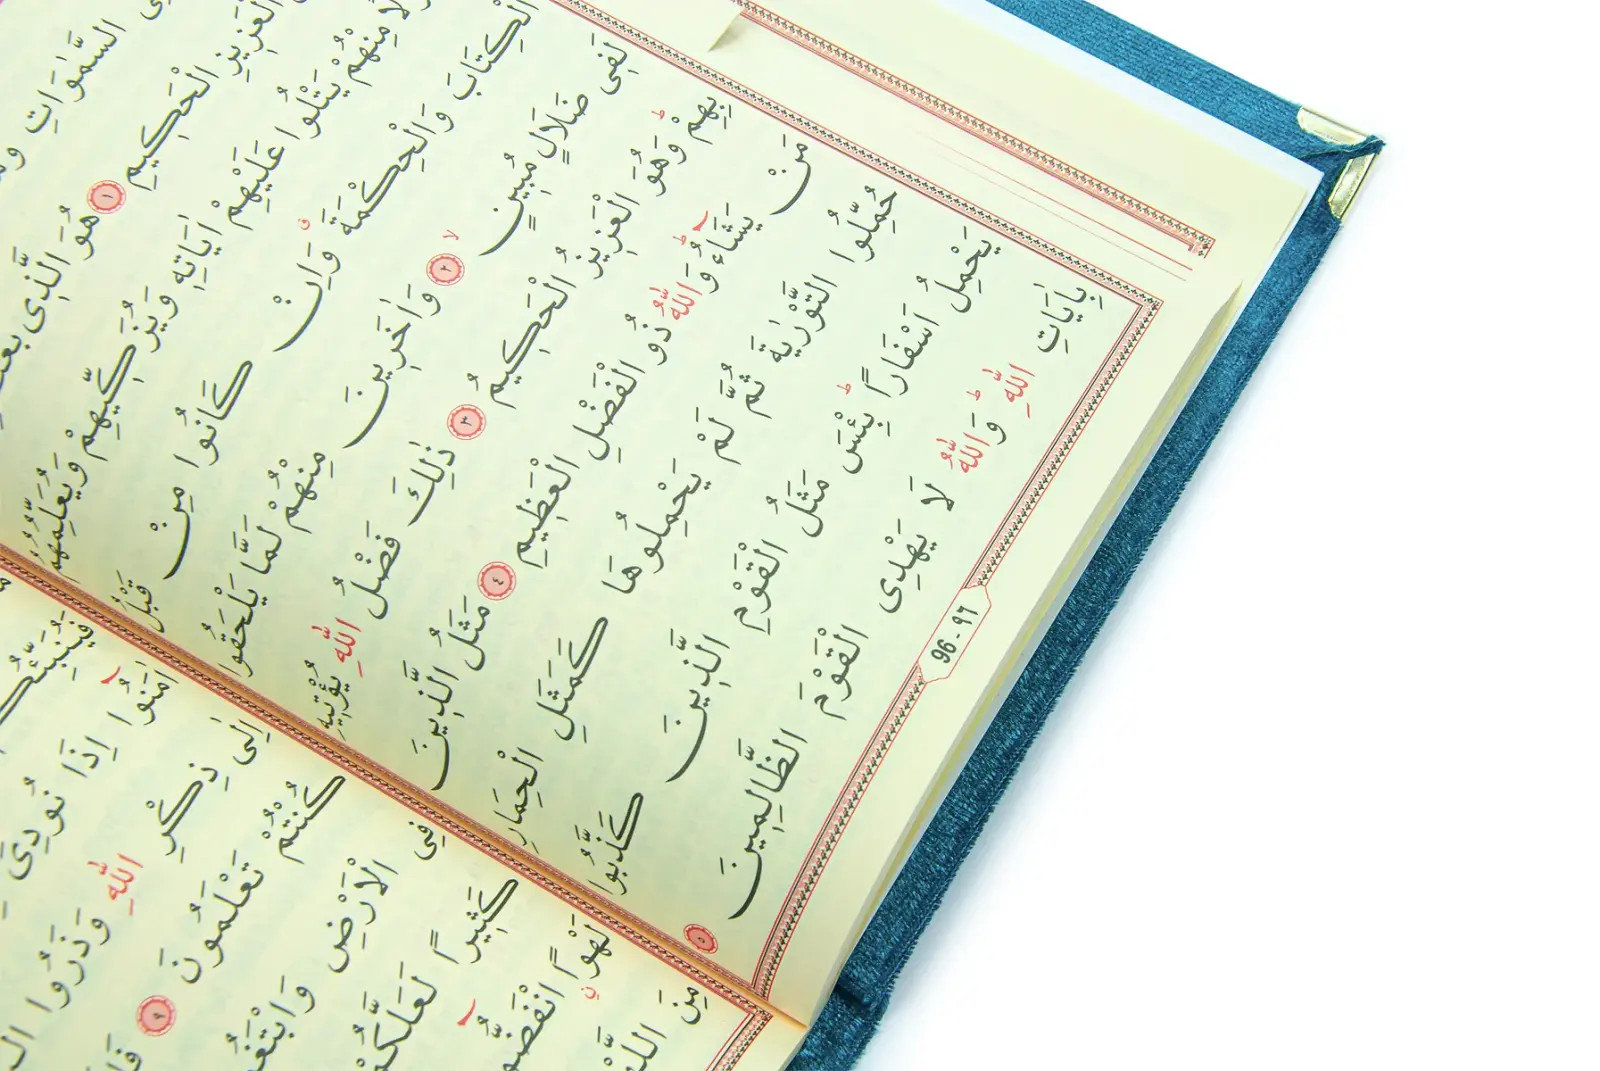 السَّمٰوَاتِ
الْعَزِيزِ الْحَكِيمِ ١ هُوَ الَّذِى بَعَثَ
مِنْهُمْ يَتْلُوا عَلَيْهِمْ اٰيَاتِهِ وَيُزَكِّيهِمْ وَيُعَلِّمُهُمُ
الْكِتَابَ وَالْحِكْمَةَ وَاِنْ كَانُوا مِنْ قَبْلُ
لَفِى ضَلَالٍ مُبِينٍ ٢ وَاٰخَرِينَ مِنْهُمْ لَمَّا يَلْحَقُوا
بِهِمْ وَهُوَ الْعَزِيزُ الْحَكِيمُ ٣ ذٰلِكَ فَضْلُ اللّٰهِ يُؤْتِيهِ
مَنْ يَشَاءُ وَاللّٰهُ ذُو الْفَضْلِ الْعَظِيمِ ٤ مَثَلُ الَّذِينَ
حُمِّلُوا التَّوْرٰيةَ ثُمَّ لَمْ يَحْمِلُوهَا كَمَثَلِ الْحِمَارِ
يَحْمِلُ اَسْفَارًا بِئْسَ مَثَلُ الْقَوْمِ الَّذِينَ كَذَّبُوا
بِاٰيَاتِ اللّٰهِ وَاللّٰهُ لَا يَهْدِى الْقَوْمَ الظَّالِمِينَ ٥
96-97
اٰمَنُوا اِذَا نُودِىَ
اِلٰى ذِكْرِ اللّٰهِ وَذَرُوا
كُنْتُمْ تَعْلَمُونَ ٩
فِى الْاَرْضِ وَابْتَغُوا
كَثِيرًا لَعَلَّكُمْ
لَهْوًا انْفَضُّوا
مِنَ